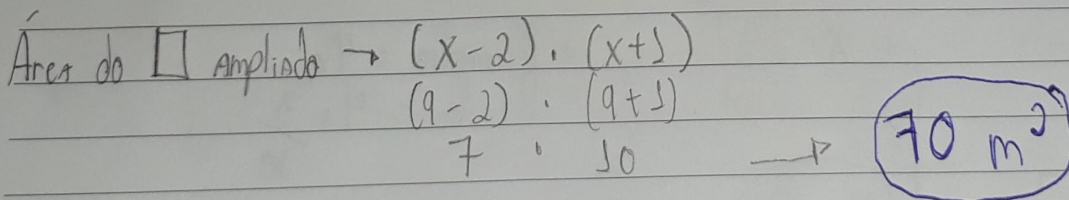 Área do □ Ampliado → (x-2). (x+1)
(9-2) . (9+1)
7 . 10 → 70 m²